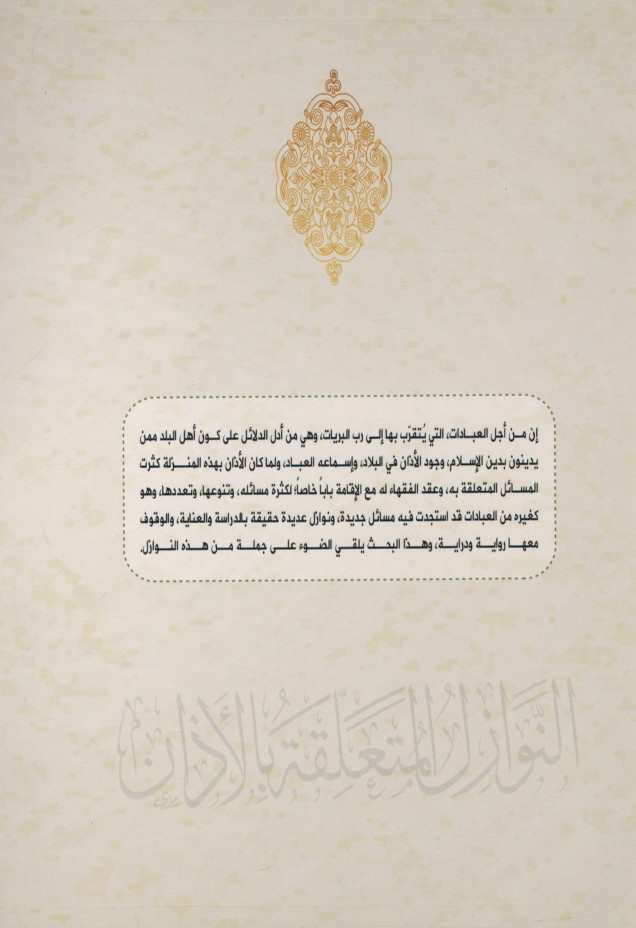 إن من أجل العبادات، التي يُتقرّب بها إلى رب البريات، وهي من أدل الدلائل على كون أهل البلد ممن
يدينون بدين الإسلام، وجود الأذان في البلاد، وإسماعه العباد، ولما كان الأذان بهذه المنزلة كثرت
المسائل المتعلقة به، وعقد الفقهاء له مع الإقامة باباً خاصاً؛ لكثرة مسائله، وتنوعها، وتعددها، وهو
كغيره من العبادات قد استجدت فيه مسائل جديدة، ونوازل عديدة حقيقة بالدراسة والعناية، والوقوف
معها رواية ودراية، وهذا البحث يلقي الضوء على جملة من هذه النوازل.
النَّوَازِلُ المُتَعَلِّقَةُ بِالْأَذَانِ